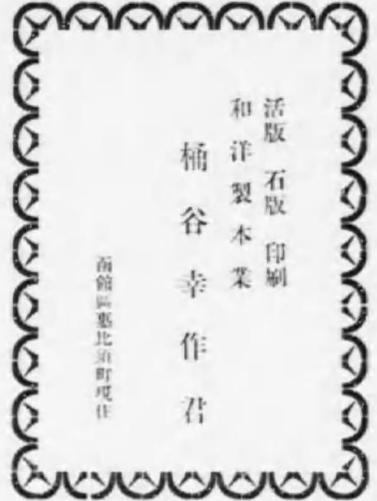 活版 石版 印刷
和洋製本業
桶谷幸作君
函館區惠比須町現住